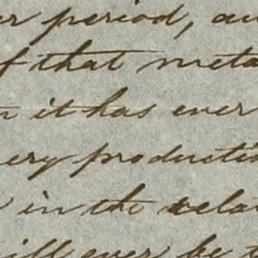 er period, an
f that meta
n it has ever
ery producti
in the rela
will ever be t